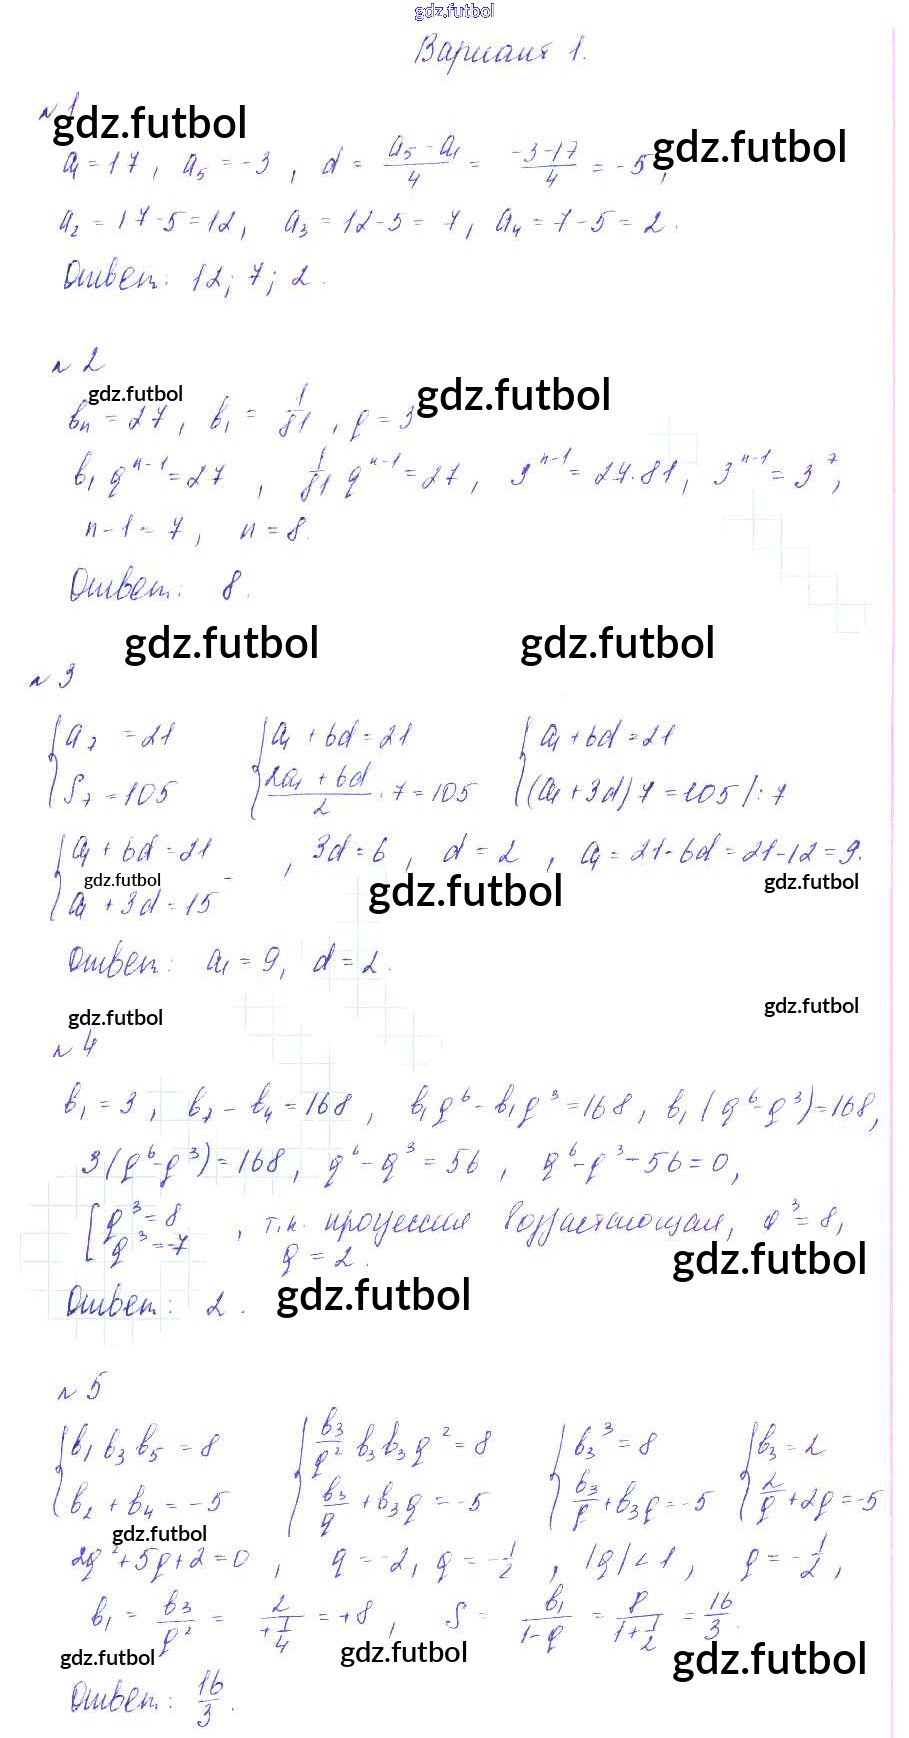 gdz.futbol
Вариант 1.
№ 1
gdz.futbol
a₁ = 17, a₅ = -3, d = (a₅ - a₁)/4 = (-3-17)/4 = -5,
gdz.futbol
a₂ = 17-5 = 12, a₃ = 12-5 = 7, a₄ = 7-5 = 2.
Ответ: 12; 7; 2.
№ 2
gdz.futbol gdz.futbol
bₙ = 27, b₁ = 1/81, q = 3
b₁ qⁿ⁻¹ = 27, 1/81 qⁿ⁻¹ = 27, 3ⁿ⁻¹ = 27·81, 3ⁿ⁻¹ = 3⁷,
n-1 = 7, n = 8.
Ответ: 8.
gdz.futbol gdz.futbol
№ 3
{a₇ = 21 {a₁ + 6d = 21 {a₁ + 6d = 21
{S₇ = 105 {(2a₁ + 6d)/2 · 7 = 105 {(a₁ + 3d) 7 = 105 | : 7
{a₁ + 6d = 21
{a₁ + 3d = 15 -, 3d = 6, d = 2, a₁ = 21-6d = 21-12 = 9.
gdz.futbol gdz.futbol gdz.futbol
Ответ: a₁ = 9, d = 2.
gdz.futbol gdz.futbol
№ 4
b₁ = 3, b₇ - b₄ = 168, b₁q⁶ - b₁q³ = 168, b₁(q⁶-q³) = 168,
3(q⁶-q³) = 168, q⁶ - q³ = 56, q⁶ - q³ - 56 = 0,
[q³ = 8
[q³ = -7, т.к. прогрессия возрастающая, q³ = 8,
q = 2.
gdz.futbol
Ответ: 2.
gdz.futbol
№ 5
{b₁ b₃ b₅ = 8 {b₃/q² b₃ b₃ q² = 8 {b₃³ = 8 {b₃ = 2
{b₂ + b₄ = -5 {b₃/q + b₃q = -5 {b₃/q + b₃q = -5 {2/q + 2q = -5
gdz.futbol
2q² + 5q + 2 = 0, q = -2, q = -1/2, |q| < 1, q = -1/2,
b₁ = b₃/q² = 2/(+1/4) = +8, S = b₁/(1-q) = 8/(1+1/2) = 16/3.
gdz.futbol gdz.futbol gdz.futbol
Ответ: 16/3.